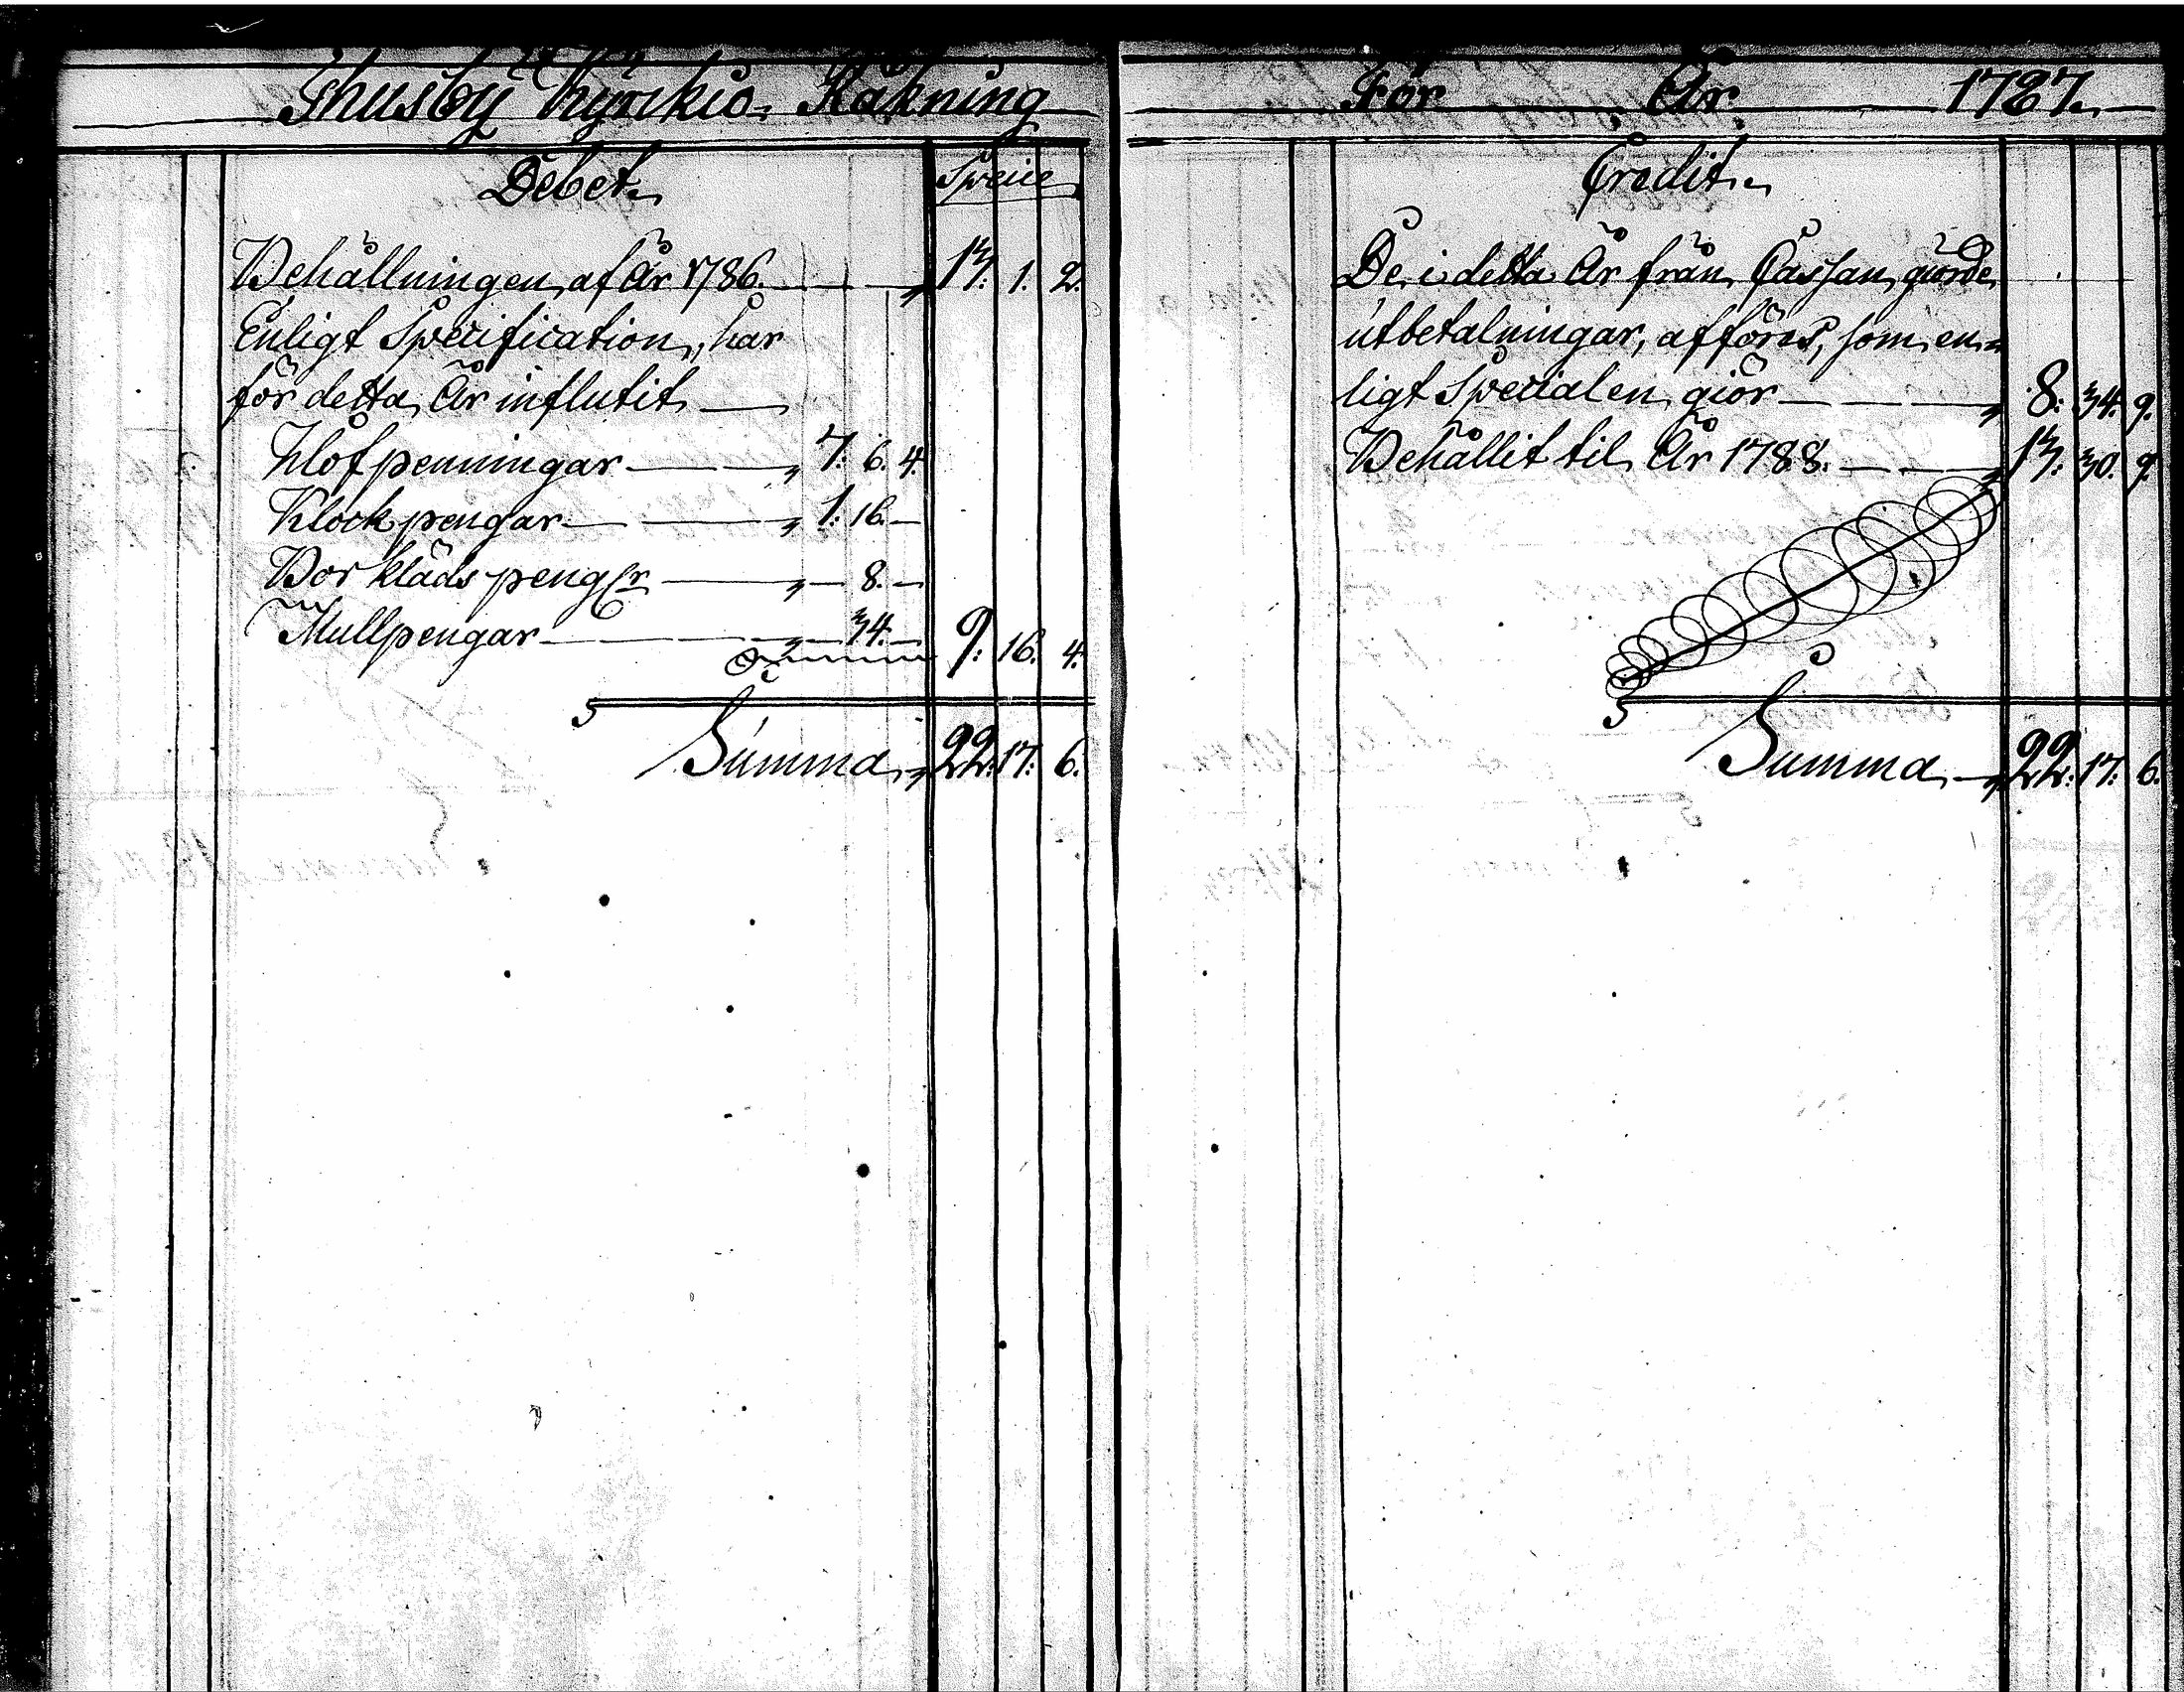 Ihusby Kyrckio-Räkning
Debet.
Specie
Behållningen af År 1786. 13. 1. 2.
Enligt Specification, har
för detta År influtit
Håfpenningar 7. 6. 4.
Klockpengar 1. 16.
Borklädspengar 8.
Mullpengar 34. 9. 16. 4.
Summa 22. 17. 6.
För År 1787.
Credit.
De i detta År från Cassan giorde
utbetalningar, afföres, som en-
ligt Specialen giör 8. 34. 9.
Behållit til År 1788. 13. 30. 9.
Summa 22. 17. 6.